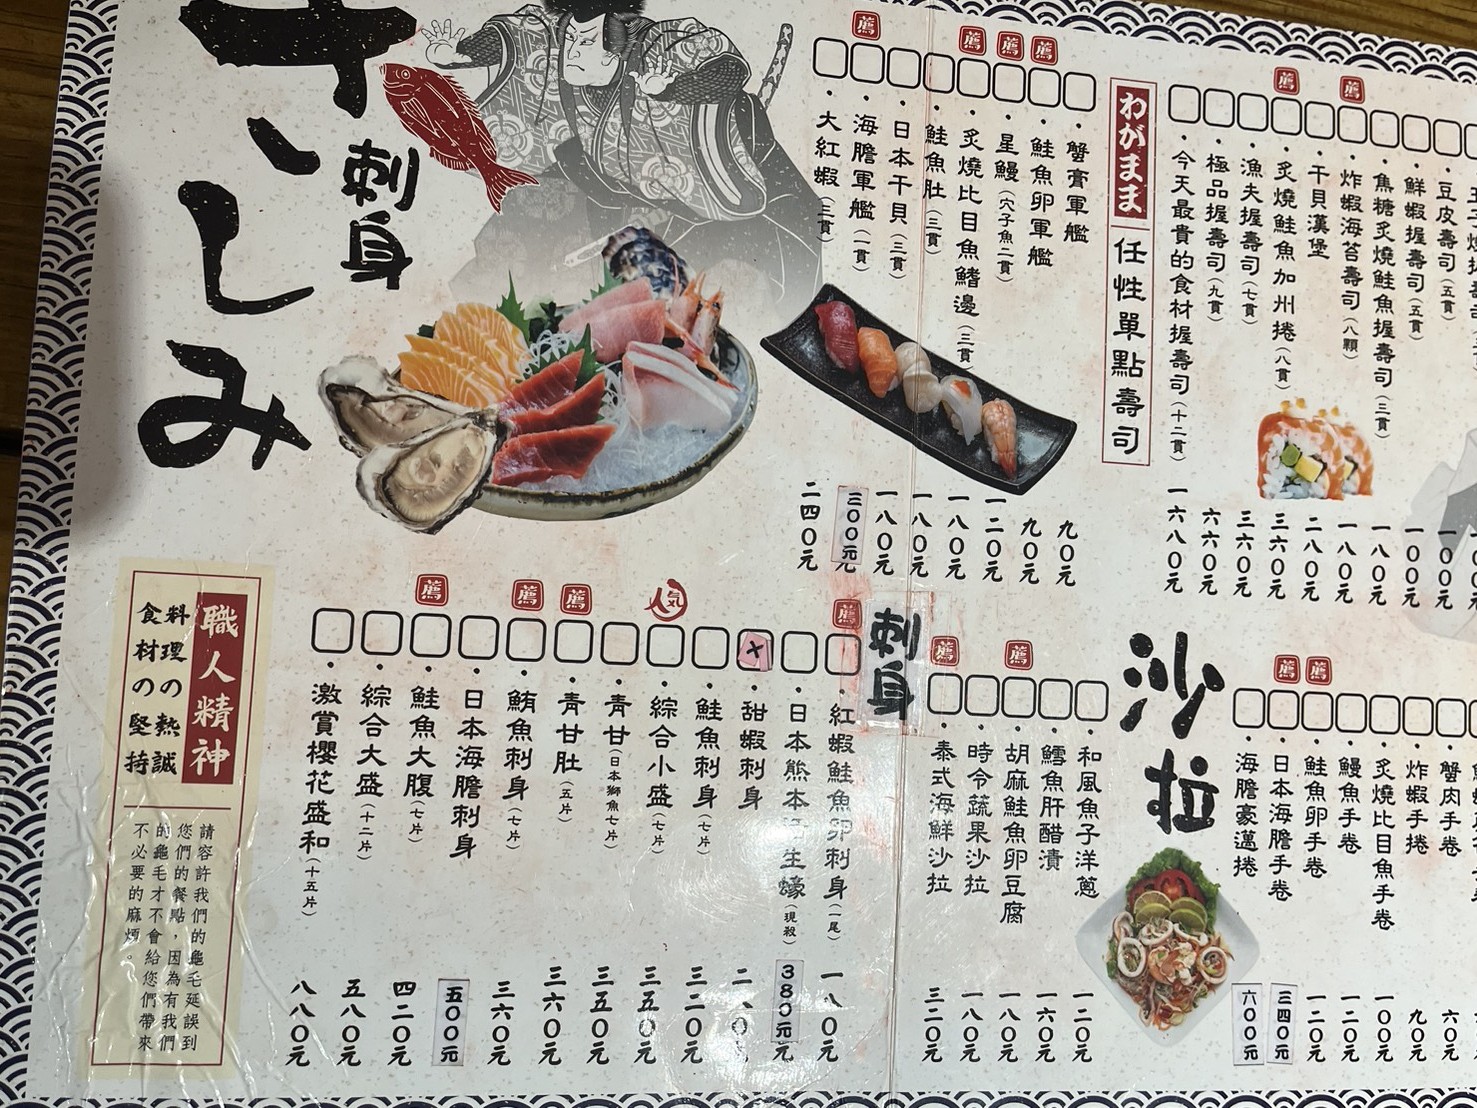 さしみ
刺身
わがまま
任性單點壽司
薦
薦
薦
薦
蟹膏軍艦
九〇元
鮭魚卵軍艦
九〇元
星鰻(穴子魚二貫)
一二〇元
炙燒比目魚鰭邊(三貫)
一八〇元
鮭魚肚(三貫)
一八〇元
日本干貝(三貫)
一八〇元
海膽軍艦(一貫)
三〇〇元
大紅蝦(三貫)
二四〇元
薦
薦
豆皮壽司(五貫)
一〇〇元
鮮蝦握壽司(五貫)
一〇〇元
焦糖炙燒鮭魚握壽司(三貫)
一八〇元
炸蝦海苔壽司(八顆)
一八〇元
干貝漢堡
二八〇元
炙燒鮭魚加州捲(八貫)
三六〇元
漁夫握壽司(七貫)
三六〇元
極品握壽司(九貫)
六六〇元
今天最貴的食材握壽司(十二貫)
一六八〇元
刺身
薦
人気
薦
薦
薦
紅蝦鮭魚卵刺身(一尾)
一八〇元
日本熊本生蠔(現殺)
380元
甜蝦刺身
鮭魚刺身(七片)
三二〇元
綜合小盛(七片)
三五〇元
青甘(日本獅魚七片)
三五〇元
青甘肚(五片)
三六〇元
鮪魚刺身(七片)
三六〇元
日本海膽刺身
五〇〇元
鮭魚大腹(七片)
四二〇元
綜合大盛(十二片)
五八〇元
激賞櫻花盛和(十五片)
八八〇元
沙拉
薦
薦
和風魚子洋蔥
一二〇元
鱈魚肝醋漬
一六〇元
胡麻鮭魚卵豆腐
一八〇元
時令蔬果沙拉
一八〇元
泰式海鮮沙拉
三二〇元
薦
薦
蟹肉手卷
六〇元
炸蝦手捲
九〇元
炙燒比目魚手卷
一〇〇元
鰻魚手卷
一二〇元
鮭魚卵手卷
一二〇元
日本海膽手卷
三四〇元
海膽豪邁捲
六〇〇元
職人精神
料理の熱誠
食材の堅持
請容許我們的龜毛延誤到
您們的餐點，因為有我們
的龜毛才不會給您們帶來
不必要的麻煩。